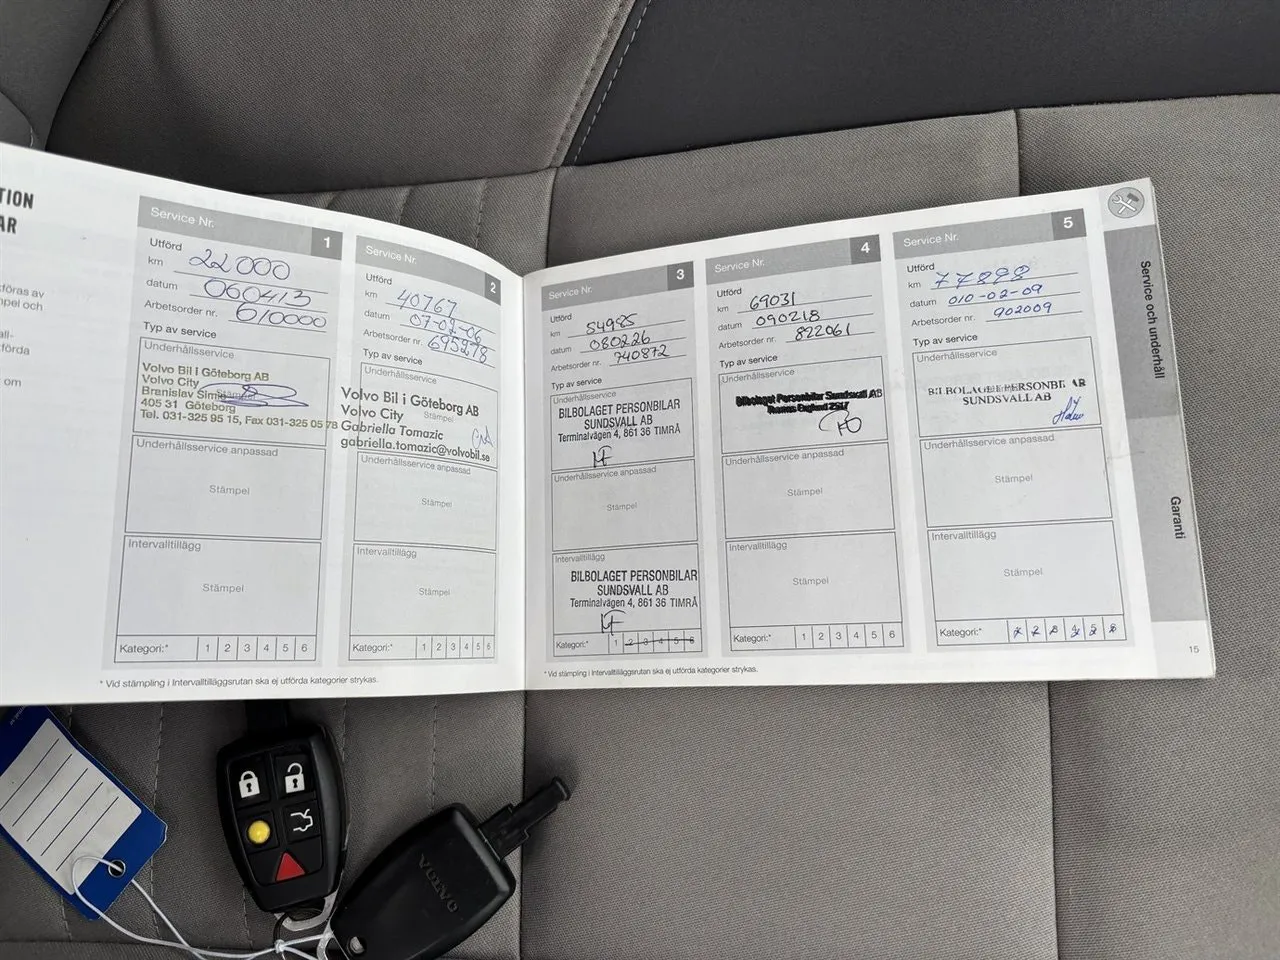 TION
AR
föras av
pel och
all-
förda
om
Service Nr. 1
Utförd
km 22000
datum 060413
Arbetsorder nr. 610000
Typ av service
Underhållsservice
Volvo Bil I Göteborg AB
Volvo City
Branislav Simic
405 31 Göteborg
Tel. 031-325 95 15, Fax 031-325 05 78
Underhållsservice anpassad
Stämpel
Intervalltillägg
Stämpel
Kategori:* 1 2 3 4 5 6
2
Service Nr.
Utförd
km 40767
datum 07-02-06
Arbetsorder nr. 695278
Typ av service
Underhållsservice
Stämpel
Volvo Bil i Göteborg AB
Volvo City
Gabriella Tomazic
gabriella.tomazic@volvobil.se
Underhållsservice anpassad
Stämpel
Intervalltillägg
Stämpel
Kategori:* 1 2 3 4 5 6
Service Nr. 3
Utförd
km 54985
datum 080226
Arbetsorder nr. 740872
Typ av service
Underhållsservice
BILBOLAGET PERSONBILAR
SUNDSVALL AB
Terminalvägen 4, 861 36 TIMRÅ
Underhållsservice anpassad
Stämpel
Intervalltillägg
BILBOLAGET PERSONBILAR
SUNDSVALL AB
Terminalvägen 4, 861 36 TIMRÅ
Kategori:* 1 2 3 4 5 6
Service Nr. 4
Utförd
km 69031
datum 090218
Arbetsorder nr. 822061
Typ av service
Underhållsservice
Bilbolaget Personbilar Sundsvall AB
Underhållsservice anpassad
Stämpel
Intervalltillägg
Stämpel
Kategori:* 1 2 3 4 5 6
Service Nr. 5
Utförd
km 77898
datum 010-02-09
Arbetsorder nr. 902009
Typ av service
Underhållsservice
BILBOLAGET PERSONBILAR
SUNDSVALL AB
Underhållsservice anpassad
Stämpel
Intervalltillägg
Stämpel
Kategori:* 1 2 3 4 5 6
* Vid stämpling i Intervalltilläggsrutan ska ej utförda kategorier strykas.
* Vid stämpling i Intervalltilläggsrutan ska ej utförda kategorier strykas.
Service och underhåll
Garanti
15
VOLVO